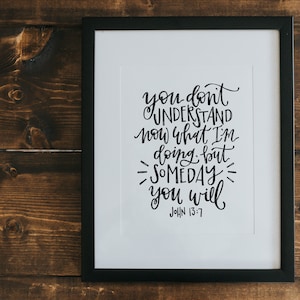 you don't
UNDERSTAND
now what I'm
doing, but
SOMEDAY
you will
JOHN 13:7